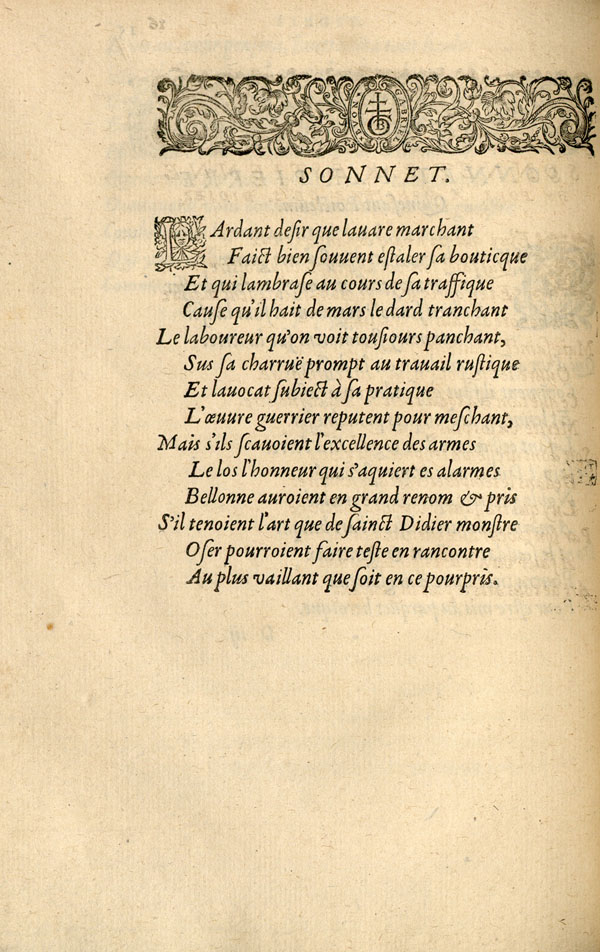 SONNET.
LArdant desir que lauare marchant
Faict bien souuent estaler sa bouticque
Et qui lambrase au cours de sa traffique
Cause qu'il hait de mars le dard tranchant
Le laboureur qu'on voit tousiours panchant,
Sus sa charruë prompt au trauail rustique
Et lauocat subiect à sa pratique
L'œuure guerrier reputent pour meschant,
Mais s'ils scauoient l'excellence des armes
Le los l'honneur qui s'aquiert es alarmes
Bellonne auroient en grand renom & pris
S'il tenoient l'art que de sainct Didier monstre
Oser pourroient faire teste en rancontre
Au plus vaillant que soit en ce pourpris.